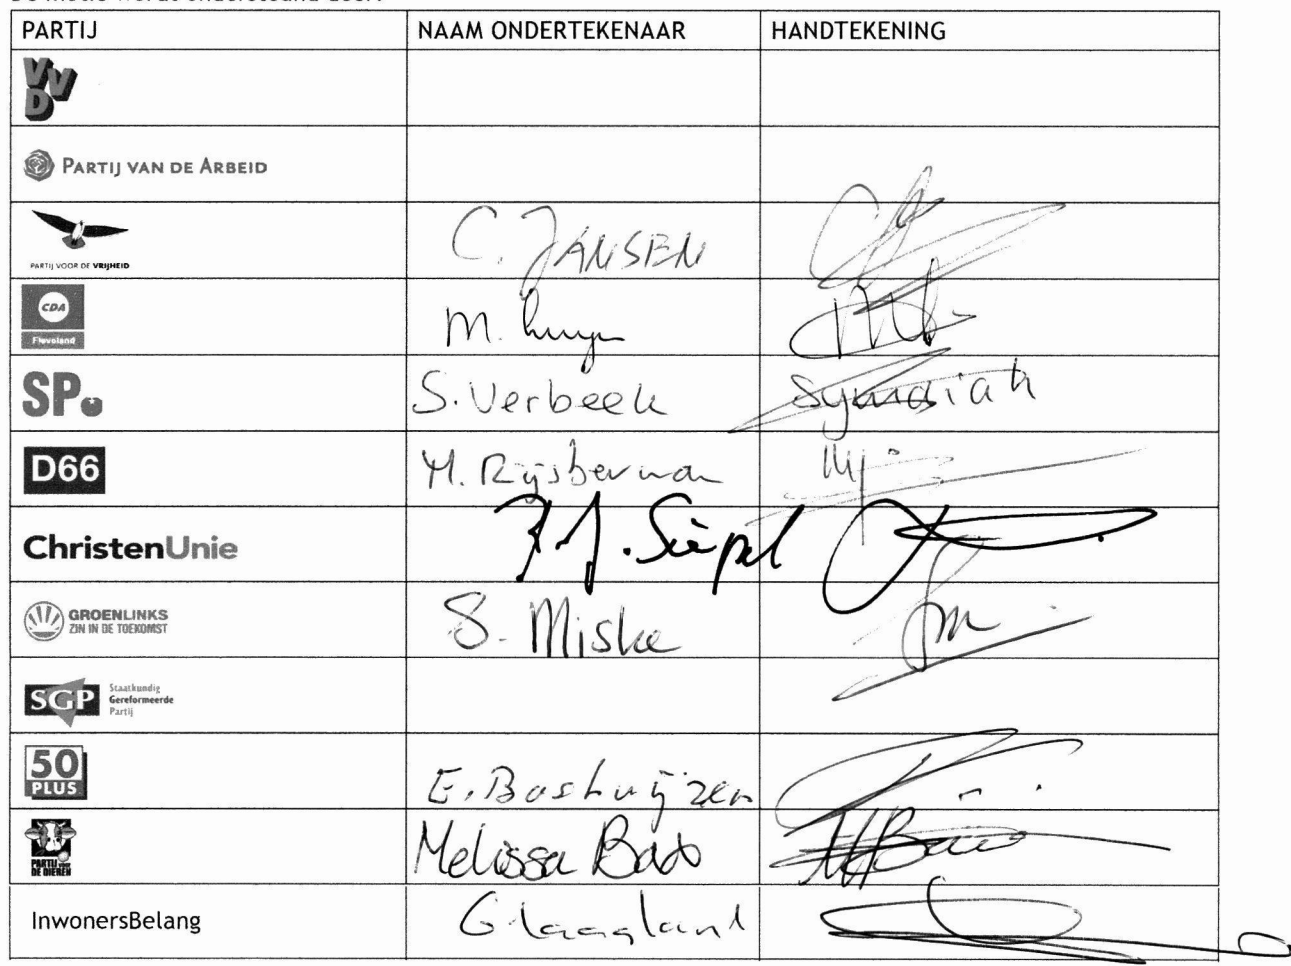 PARTIJ NAAM ONDERTEKENAAR HANDTEKENING
VVD
PARTIJ VAN DE ARBEID
PARTIJ VOOR DE VRIJHEID C. JANSEN
CDA
Flevoland M.
SP. S. Verbeek
D66 M. Rijsberman
ChristenUnie J. Siepel
GROENLINKS
ZIN IN DE TOEKOMST S. Miske
SGP Staatkundig
Gereformeerde
Partij
50
PLUS E. Boshuijzen
PARTIJ VOOR
DE DIEREN Melissa Bax
InwonersBelang G Laagland